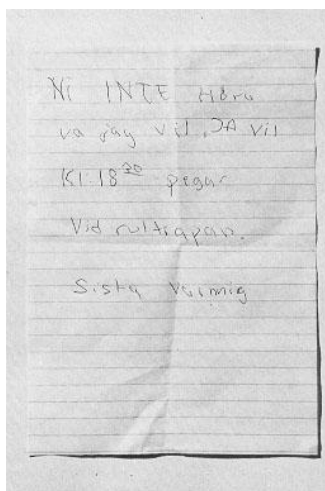 Ni INTE Höra
va jag vil, JA vil
Kl 18³⁰ pegar
Vid rultrapan.
Sista